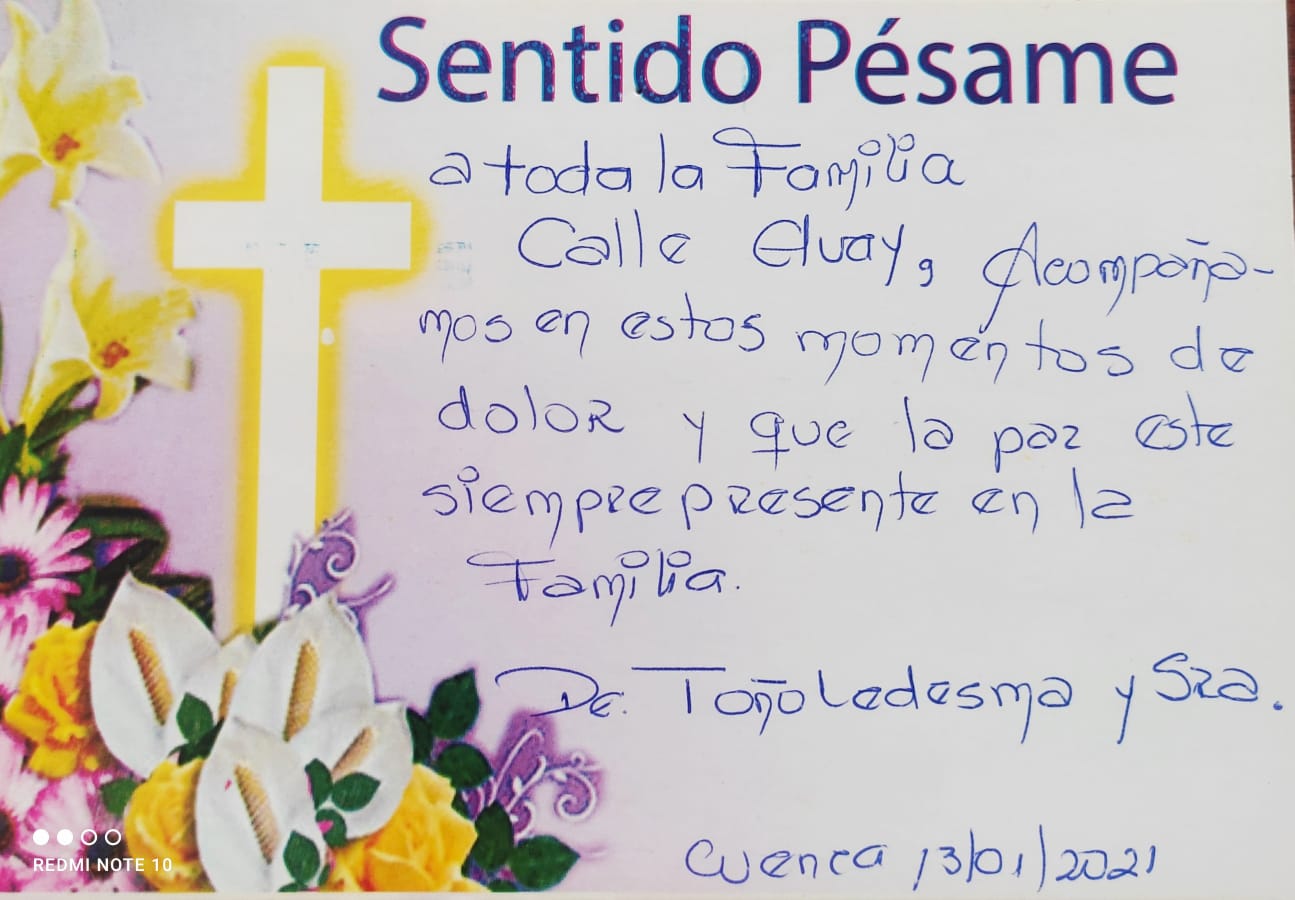 Sentido Pésame
a toda la Familia
Calle Elvay, Acompaña-
mos en estos momentos de
dolor y que la paz este
siempre presente en la
Familia.
De. Toño Ledesma y Sra.
Cuenca 13/01/2021
REDMI NOTE 10